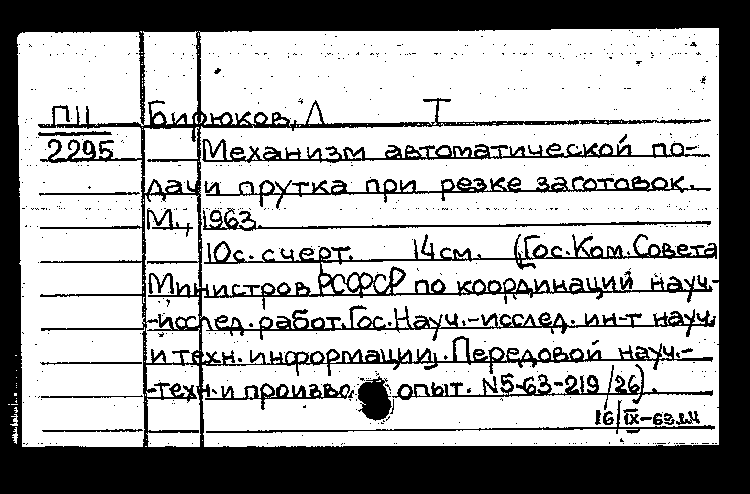 ПII Бирюков, Л Т
2295 Механизм автоматической по-
дачи прутка при резке заготовок.
М., 1963.
10с. с черт. 14 см. (Гос. Ком. Совета
Министров РСФСР по координаций науч.-
-исслед. работ. Гос. Науч.-исслед. ин-т науч.
и техн. информации. Передовой науч.-
-техн. и произво опыт. N5-63-219/26).
16/IX-63